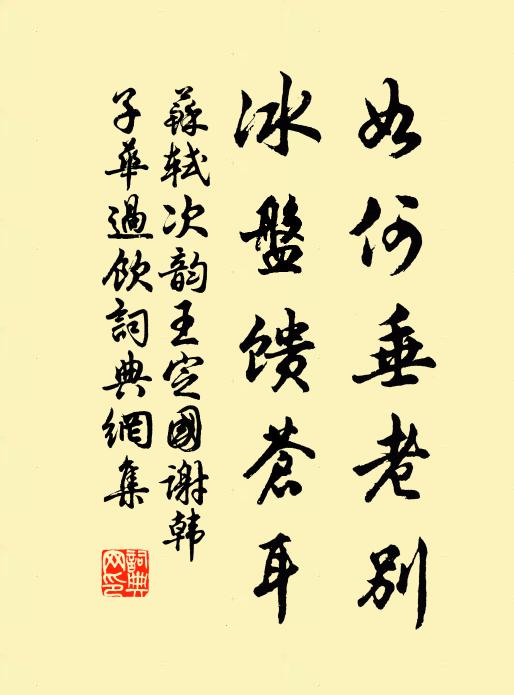 如何垂老别
冰盤馈蒼耳
蘇軾次韵王定國謝韩
子華過飲詞典網集
詞典
网印